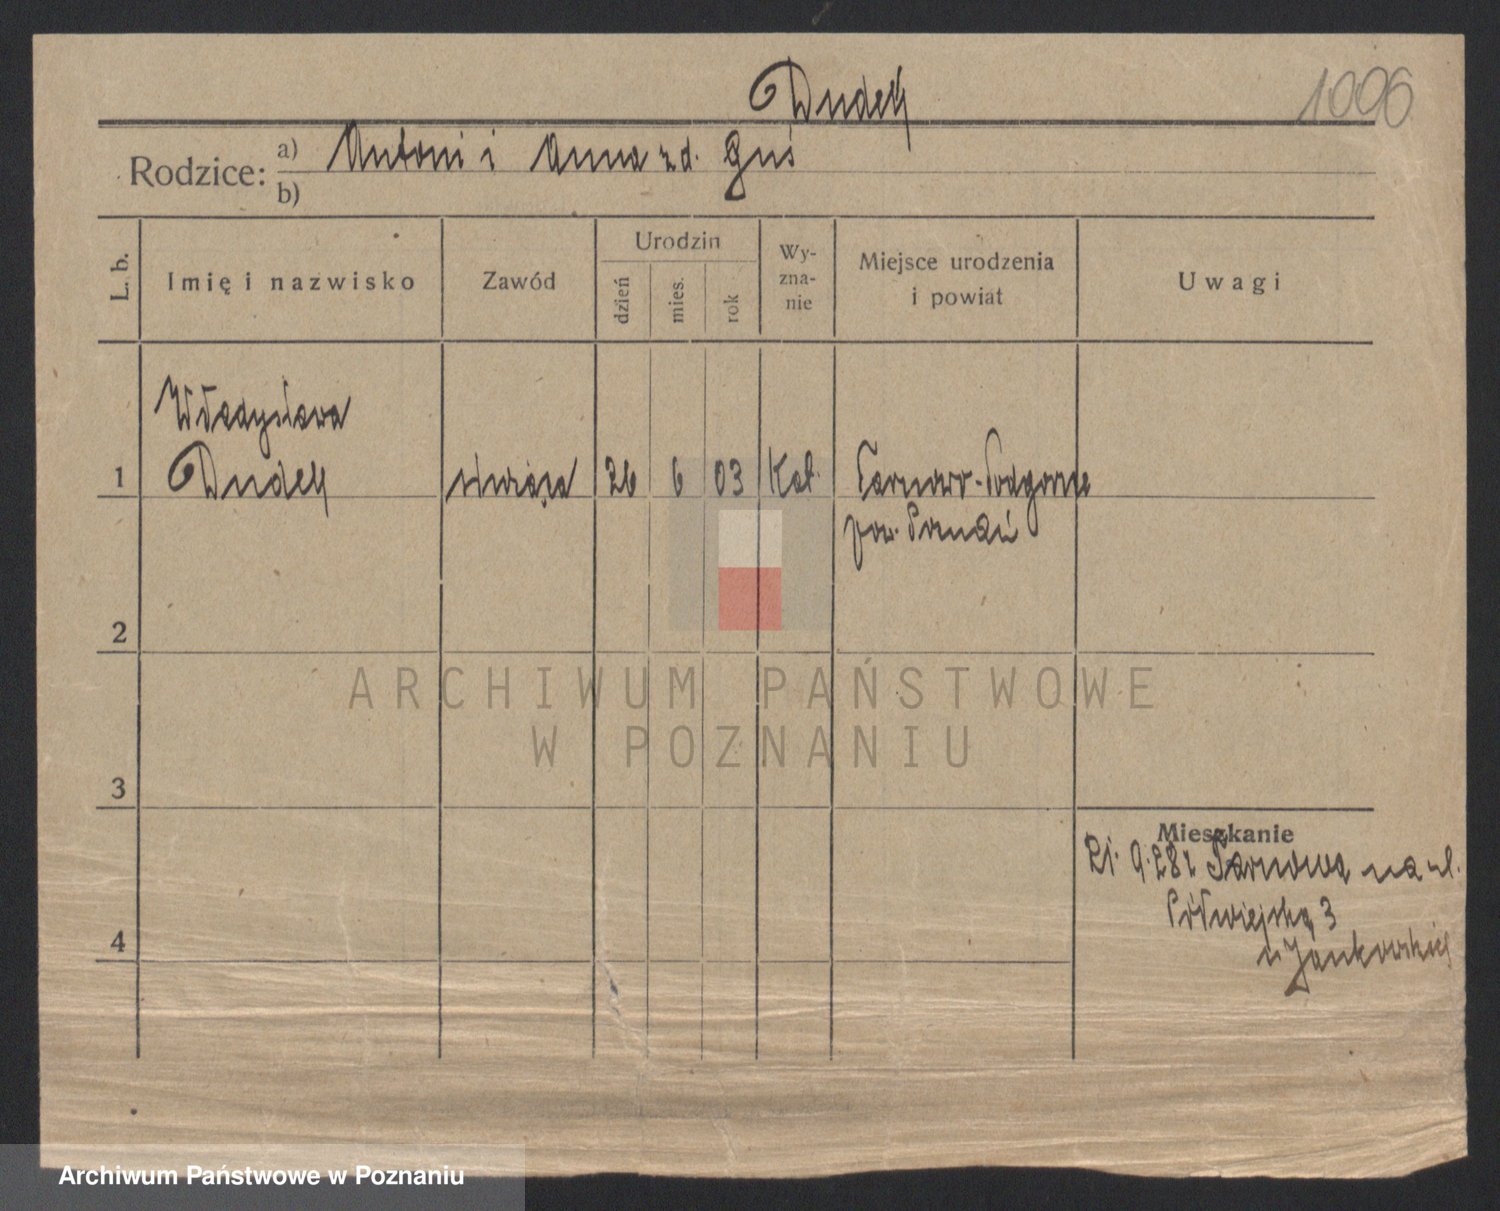 Dudek
1006
Rodzice: a) Antoni i Anna z d. Guś
b)
L. b.
Imię i nazwisko
Zawód
Urodzin
dzień
mies.
rok
Wy-
zna-
nie
Miejsce urodzenia
i powiat
Uwagi
Władysława
1 Dudek służąca 26 6 03 Kat. Tarnowo-Podgórne
pow. Poznań
2
3
4
Mieszkanie
21. 9. 28 z Tarnowa na ul.
Półwiejską 3
u Jankowskiej
ARCHIWUM PAŃSTWOWE
W POZNANIU
Archiwum Państwowe w Poznaniu